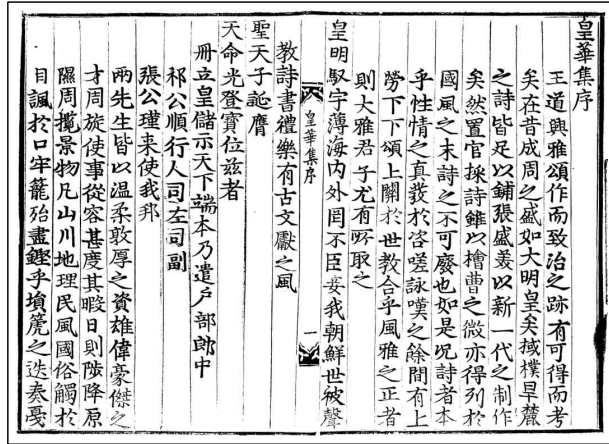 皇華集序
王道興雅頌作而致治之跡有可得而考
矣在昔成周之盛如大明皇矣棫樸旱麓
之詩皆足以鋪張盛美以新一代之制作
矣然置官採詩雖以檜曹之微亦得列於
國風之末詩之不可廢也如是況詩者本
乎性情之真發於咨嗟詠嘆之餘間有上
勞下下頌上關於世教合乎風雅之正者
則大雅君子尤有所取之
皇明馭宇薄海內外罔不臣妾我朝鮮世被聲
皇華集序
一
教詩書禮樂有古文獻之風
聖天子誕膺
天命光登寶位玆者
冊立皇儲示天下端本乃遣戶部郎中
祁公順行人司左司副
張公瑾來使我邦
兩先生皆以溫柔敦厚之資雄偉豪傑之
才周旋使事從容甚度其暇日則陟降原
隰周攬景物凡山川地理民風國俗觸於
目諷於口牢籠殆盡鏗乎塤箎之迭奏戛